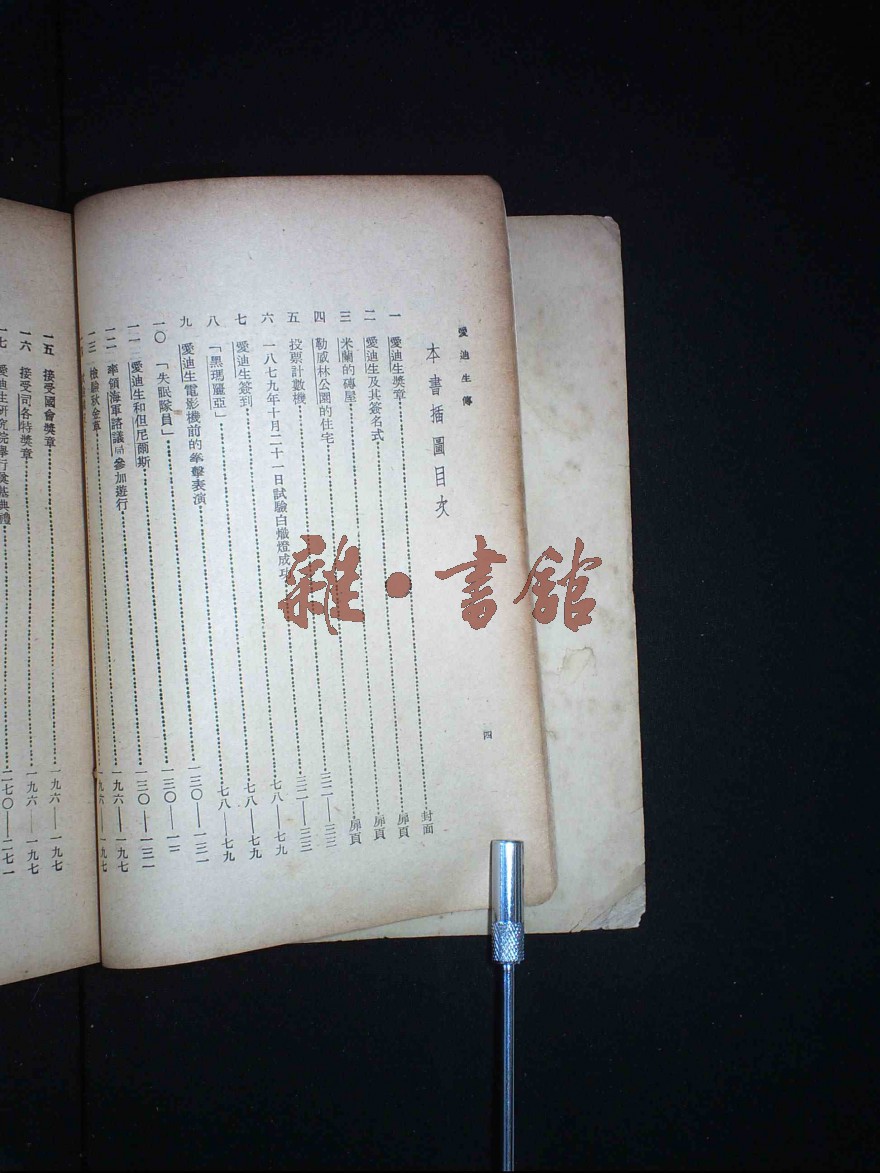 愛迪生傳
四
本書插圖目次
一 愛迪生獎章……封面
二 愛迪生及其簽名式……扉頁
三 米蘭的磚屋……扉頁
四 勒威林公園的住宅……扉頁
五 投票計數機……三二——三三
六 一八七九年十月二十一日試驗白熾燈成功……三二——三三
七 愛迪生簽到……七八——七九
八 「黑瑪麗亞」……七八——七九
九 愛迪生電影機前的拳擊表演……七八——七九
一〇 「失眠隊員」……一三〇——一三一
一一 愛迪生和但尼爾斯……一三〇——一三一
一二 率領海軍諮議局參加遊行……一三〇——一三一
一三 檢驗秋金草……一九六——一九七
一九六——一九七
一五 接受國會獎章……一九六——一九七
一六 接受司各特獎章……一九六——一九七
一七 愛迪生研究院舉行奠基典禮……二七〇——二七一
雜·書館